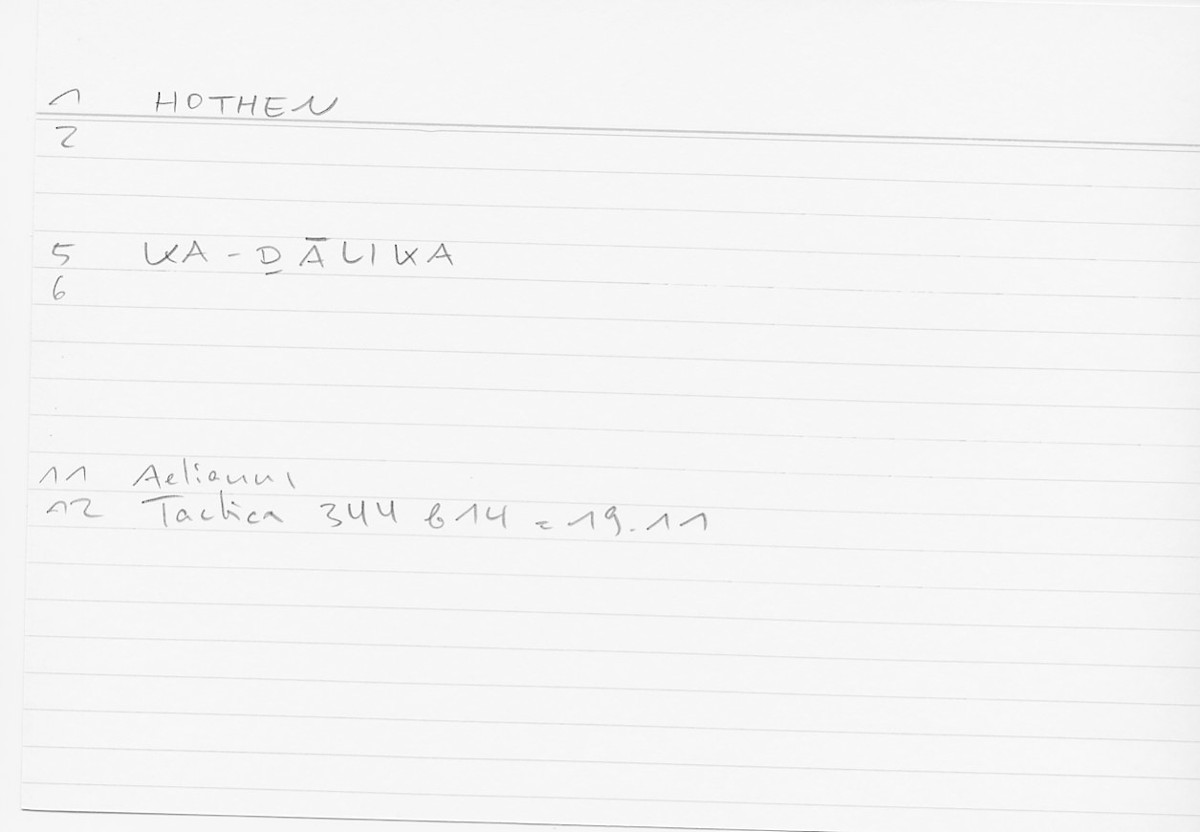 1 HOTHEN
2
5 KA-ḎĀLIKA
6
11 Aelianus
12 Tactica 344 b14 = 19.11